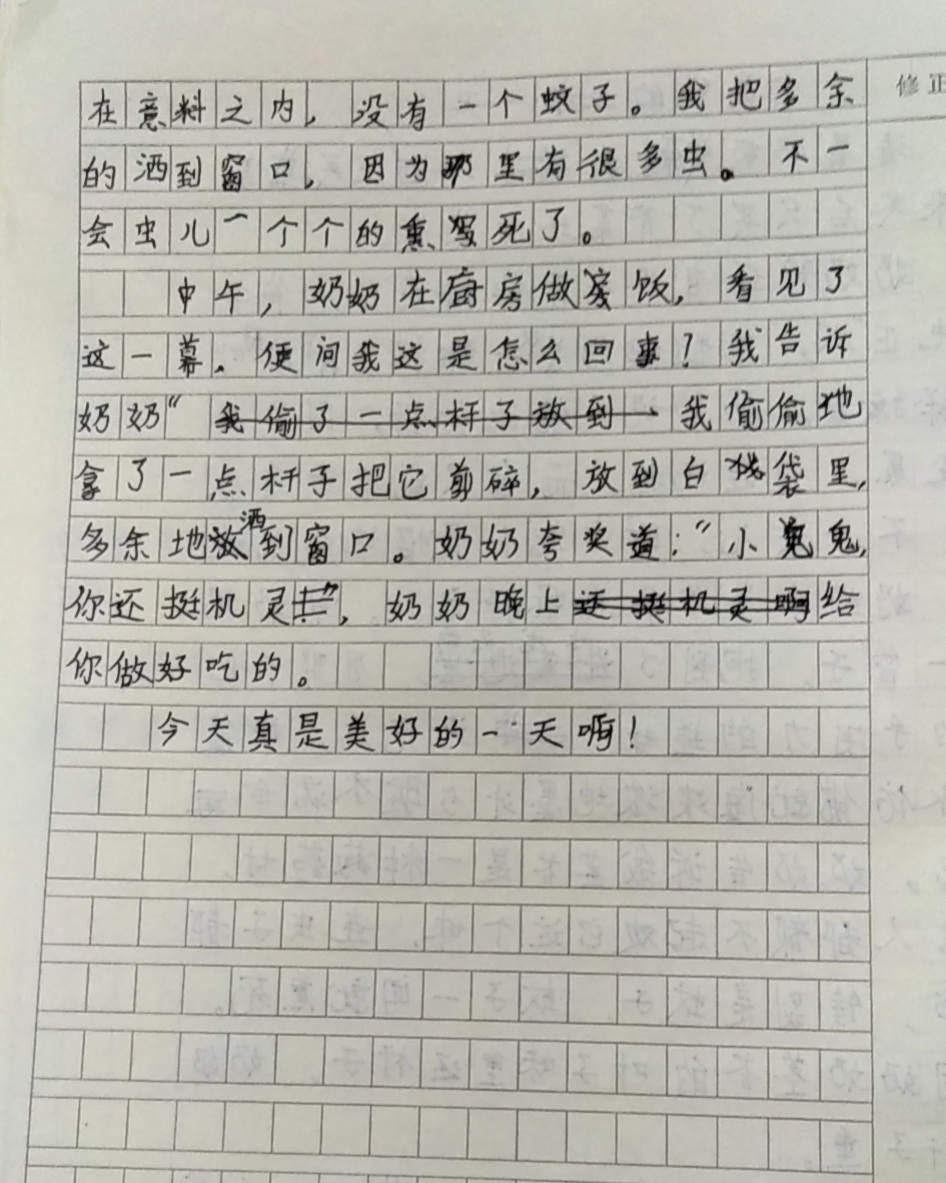 修正
在意料之内，没有一个蚊子。我把多余
的洒到窗口，因为那里有很多虫。不一
会虫儿一个个的熏死了。
中午，奶奶在厨房做饭，看见了
这一幕。便问我这是怎么回事？我告诉
奶奶“我偷了一点杆子放到、我偷偷地
拿了一点杆子把它剪碎，放到白袋里，
多余地洒到窗口。奶奶夸奖道：“小鬼，
你还挺机灵”，奶奶晚上还挺机灵啊给
你做好吃的。
今天真是美好的一天啊！